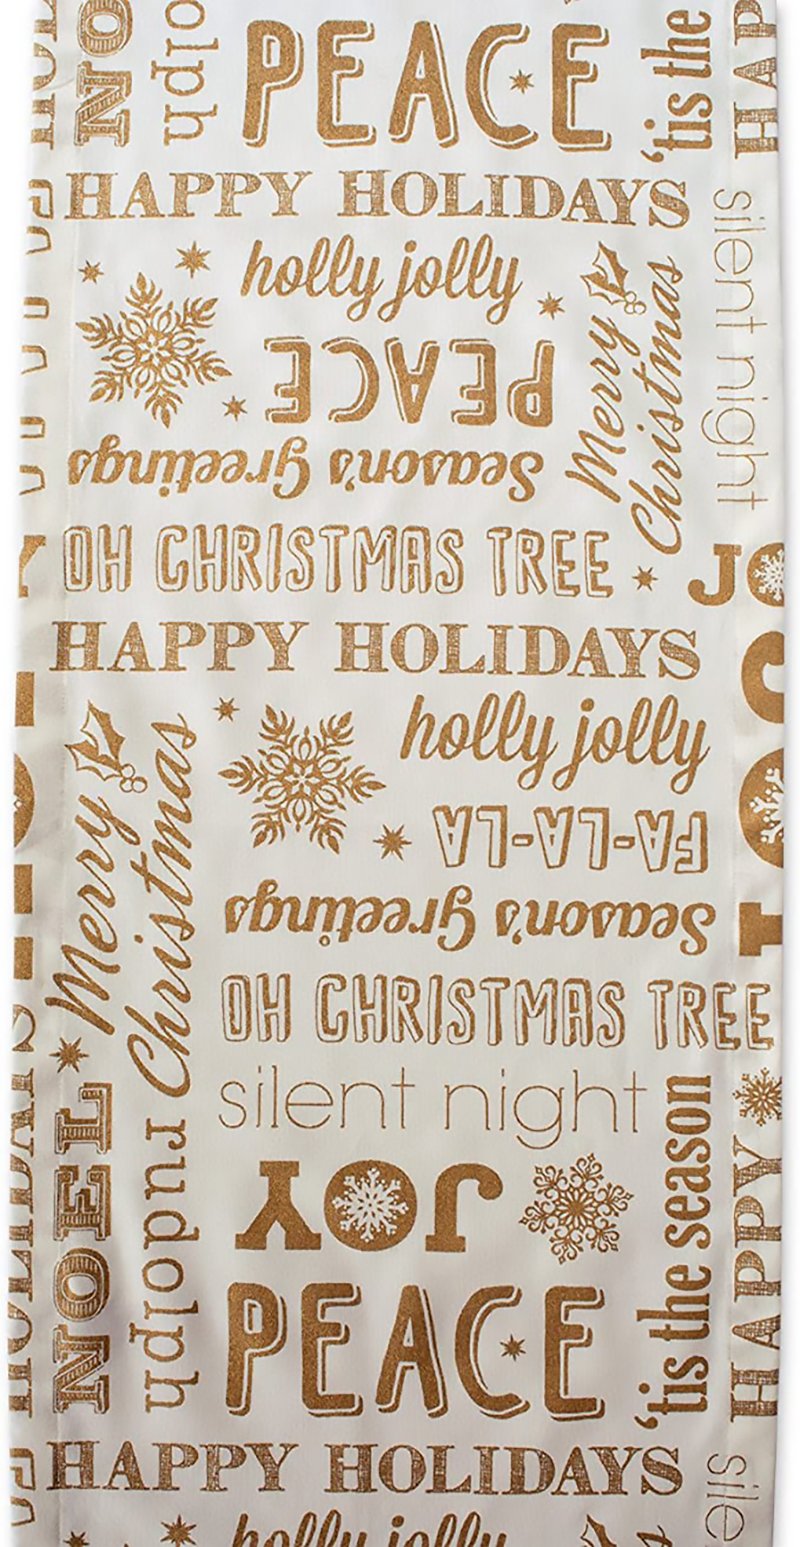 NO
olph
PEACE
'tis the
HAP
HAPPY HOLIDAYS
silent night
holly jolly
PEACE
Merry
Christmas
Season's Greetings
OH CHRISTMAS TREE
JO
HAPPY HOLIDAYS
Merry
Christmas
holly jolly
FA-LA-LA
Season's Greetings
JO
OH CHRISTMAS TREE
silent night
NOEL
rudolph
JOY
'tis the season
HAPPY
HOLIDAYS
PEACE
HAPPY HOLIDAYS
sile
holly jolly